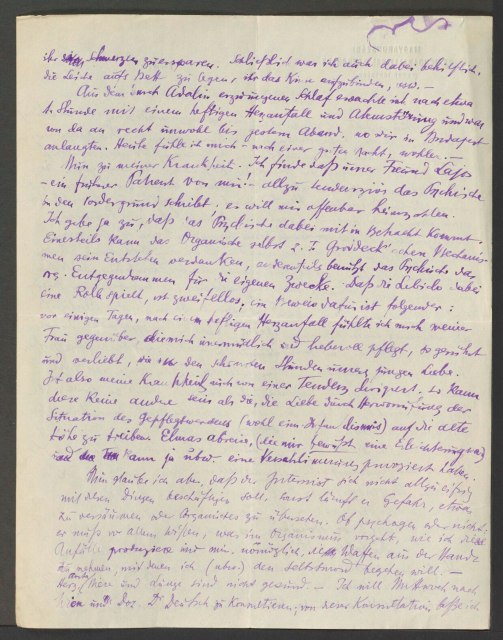 ihr Schmerzen zu ersparen. Schließlich war ich auch dabei behilflich,
die Leiche aufs Bett zu legen, ihr das Kinn aufzubinden, usw. –
Aus dem durch Adalin erzwungenen Schlaf erwachte ich nach etwa
1. Stunde mit einem heftigen Herzanfall und Atemstörung und war
von da an recht unwohl bis gestern Abend, wo wir in Budapest
anlangten. Heute fühle ich mich – nach einer guten Nacht, wohler. –
Nun zu meiner Krankheit. Ich finde daß unser Freund Lajos
– ein früherer Patient von mir! – allzu tendenziös das Psychische
in den Vordergrund schiebt. es will mir offenbar heimzahlen.
Ich gebe ja zu, daß das Psychische dabei mit in Betracht kommt.
Einesteils kann das Organische selbst z. T. Groddeck'schen Mechanis-
men sein Entstehen verdanken, anderenteils benützt das Psychische das
org. Entgegenkommen für die eigenen Zwecke. Daß die Libido dabei
eine Rolle spielt, ist zweifellos; ein Beweis dafür ist folgender:
vor einigen Tagen, nach einem heftigen Herzanfall fühlte ich mich meiner
Frau gegenüber, die mich unermüdlich und liebevoll pflegt, so gerührt
und verliebt, wie in den schönsten Stunden unserer jungen Liebe.
Ist also meine Krankheit auch von einer Tendenz dirigiert, so kann
diese keine andre sein als die, die Liebe durch Hervorrufung der
Situation des Gepflegtwerdens (wohl ein Infantilismus) auf die alte
Höhe zu treiben. Elmas Abreise, (die mir bewußt eine Erleichterung war)
kann ja ubw. eine Verschlimmerung provoziert haben.
Nun glaube ich aber, daß der Internist sich nicht allzu eifrig
mit diesen Dingen beschäftigen soll, sonst läuft er Gefahr, etwas
zu versäumen oder Organisches zu übersehen. Ob psychogen oder nicht:
er muß vor allem wissen, was im Organismus vorgeht, wie ich die
Anfälle produziere und mir womöglich die Waffe aus der Hand
zu nehmen, mit denen ich (ubw.) den Selbstmord begehen will. –
Herz und Niere sind nicht gesund. – Ich will Mittwoch nach
Wien und Doz. Dr Deutsch zu konsultieren; von dieser Konsultation, daß ich